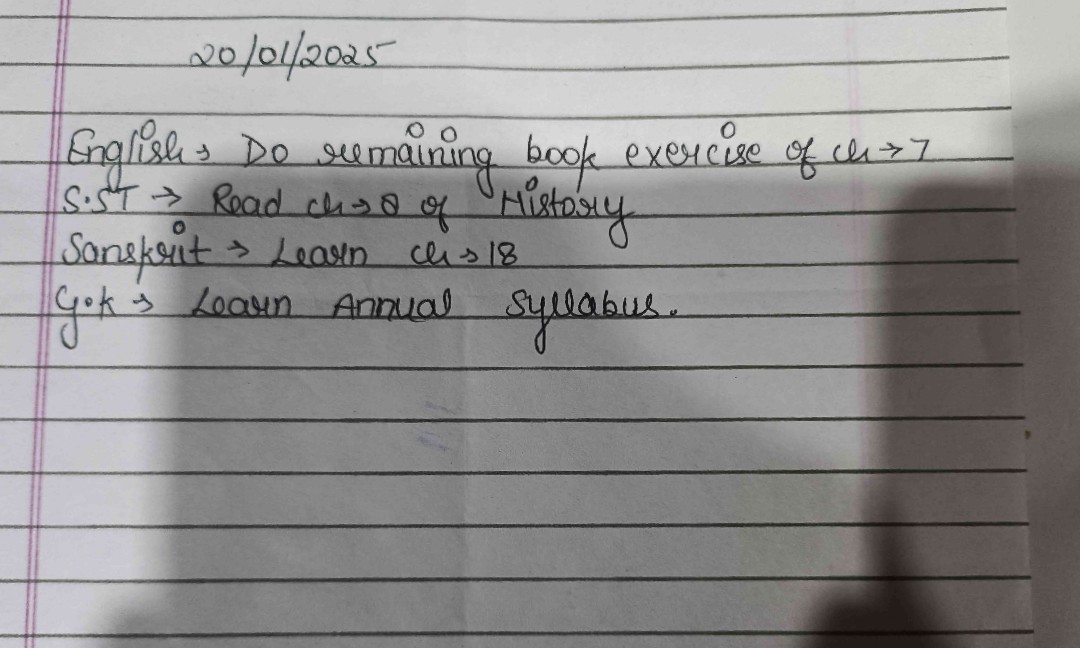 20/01/2025
English → Do remaining book exercise of ch → 7
S.ST → Read ch → 8 of History
Sanskrit → Learn ch → 18
G.k → Learn Annual Syllabus.